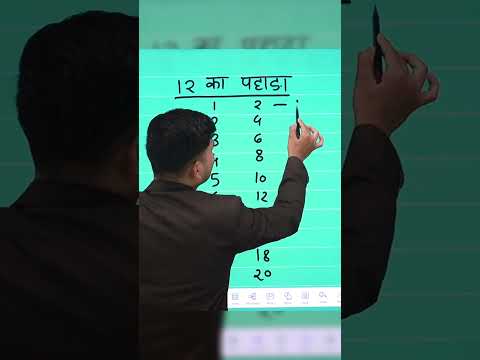 १२ का पहाडा
1 2 –
2 4
3 6
4 8
5 10
12
18
20